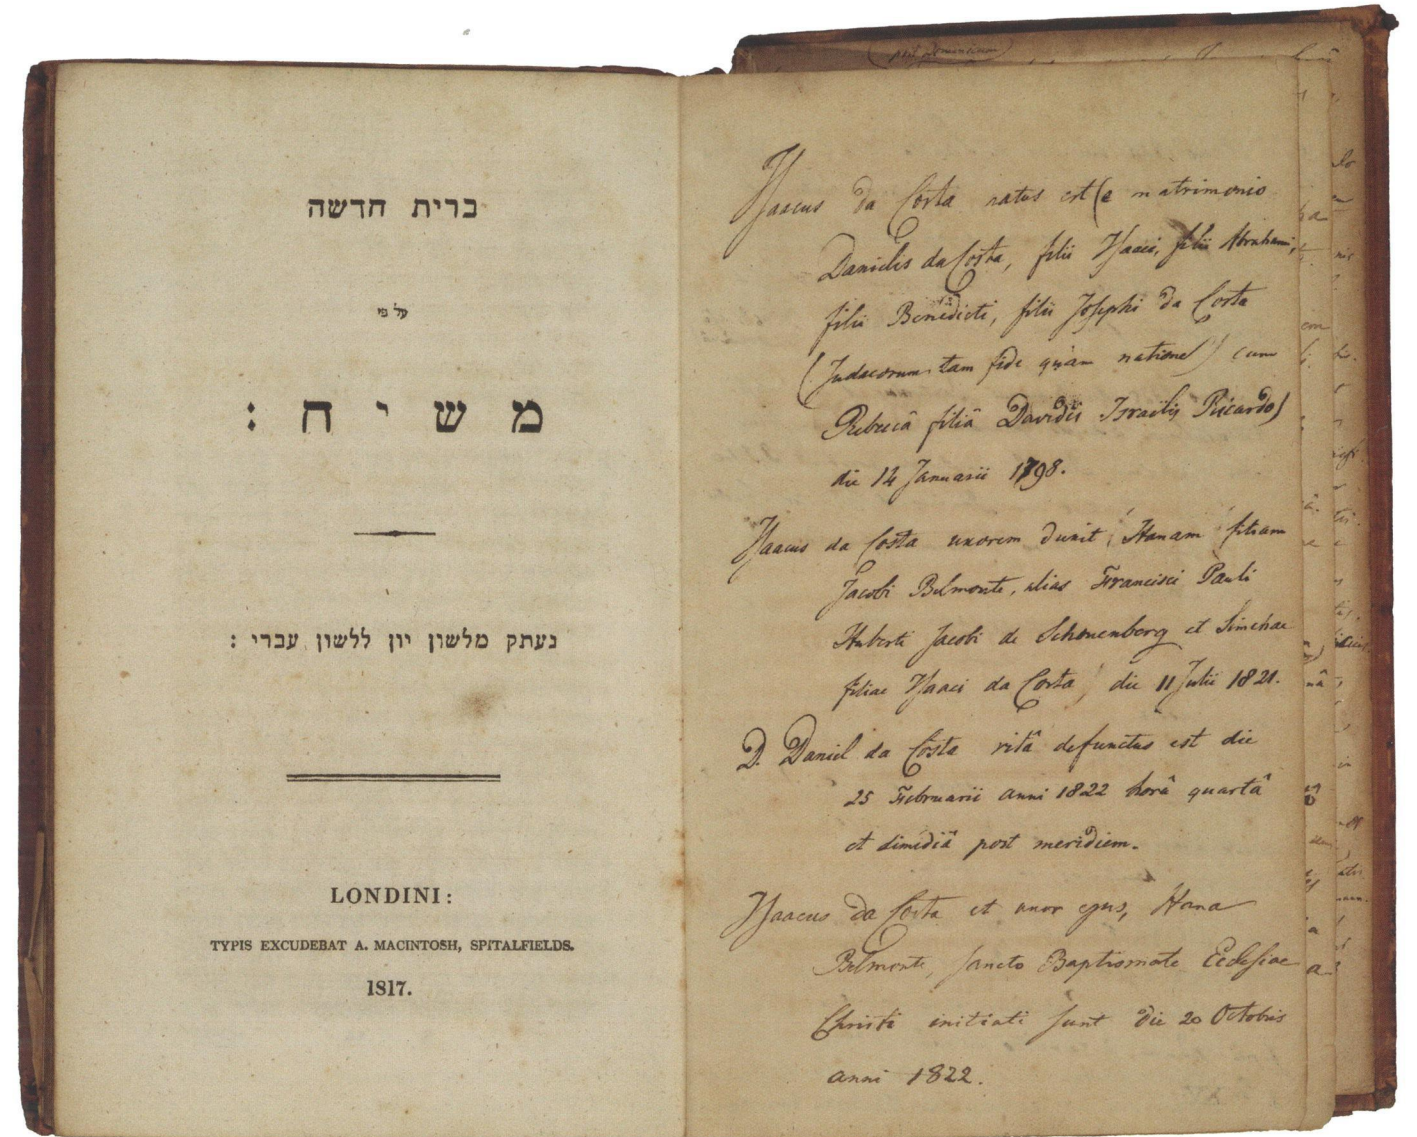 ברית חדשה
על פי
משיח:
נעתק מלשון יון ללשון עברי:
LONDINI:
TYPIS EXCUDEBAT A. MACINTOSH, SPITALFIELDS.
1817.
Isaacus da Costa natus est (e matrimonio
Danielis da Costa, filii Isaaci, filii Abrahami,
filii Benedicti, filii Josephi da Costa
(Judaeorum tam fide quam natione) cum
Rebeccâ filiâ Davidis Israëlis Ricardo)
die 14 Januarii 1798.
Isaacus da Costa uxorem duxit, Hanam filiam
Jacobi Belmonte, alias Francisci Pauli
Huberti Jacobi de Schonenberg et Simchae
filiae Isaaci da Costa, die 11 Julii 1821.
D. Daniel da Costa vitâ defunctus est die
25 Februarii anni 1822 horâ quartâ
et dimidiâ post meridiem.
Isaacus da Costa et uxor ejus, Hana
Belmonte, sancto Baptismate Ecclesiae
Christi initiati sunt die 20 Octobris
anni 1822.